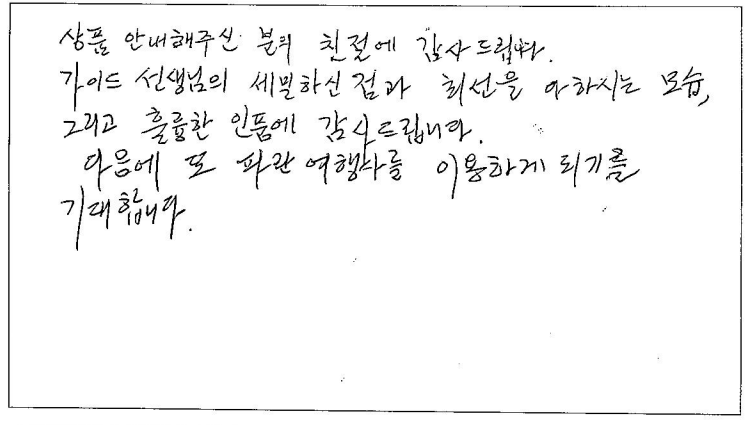 상품 안내해주신 분의 친절에 감사드립니다.
가이드 선생님의 세밀하신 점과 최선을 다하시는 모습,
그리고 훌륭한 인품에 감사드립니다.
다음에 또 파란 여행사를 이용하게 되기를
기대합니다.